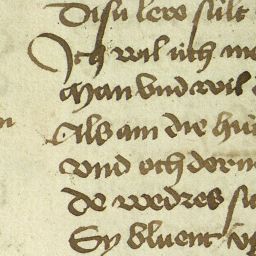 Disu lero sült
Ich wil üch me
Man vnd wil
Als am die hü
vnd och dorn
de wedres su
Sy bluent v